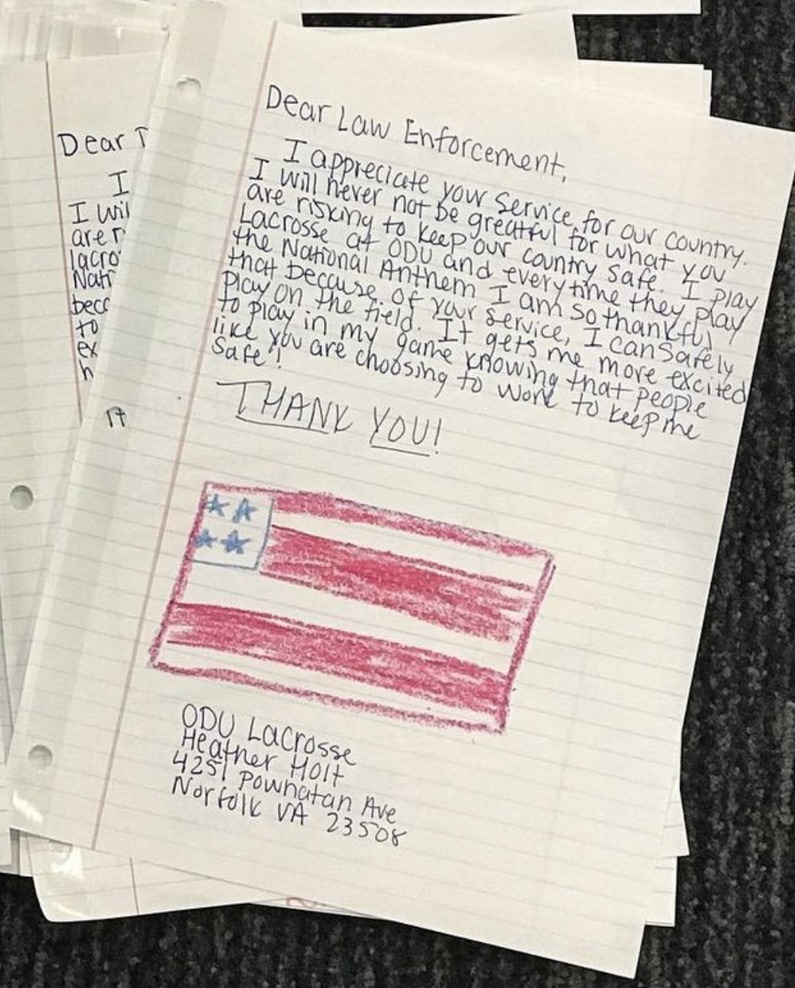 Dear Law Enforcement,
I appreciate your service, for our country.
I will never not be greatful for what you
are risking to keep our country safe. I play
Lacrosse at ODU and everytime they play
the National Anthem I am so thankful
that because of your service, I can safely
play on the field. It gets me more excited
to play in my game knowing that people
like you are choosing to work to keep me
safe!
THANK YOU!
ODU Lacrosse
Heather Holt
4251 Powhatan Ave
Norfolk VA 23508
Dear
I
I wil
are r
lacro
Nati
beca
to
ex
h